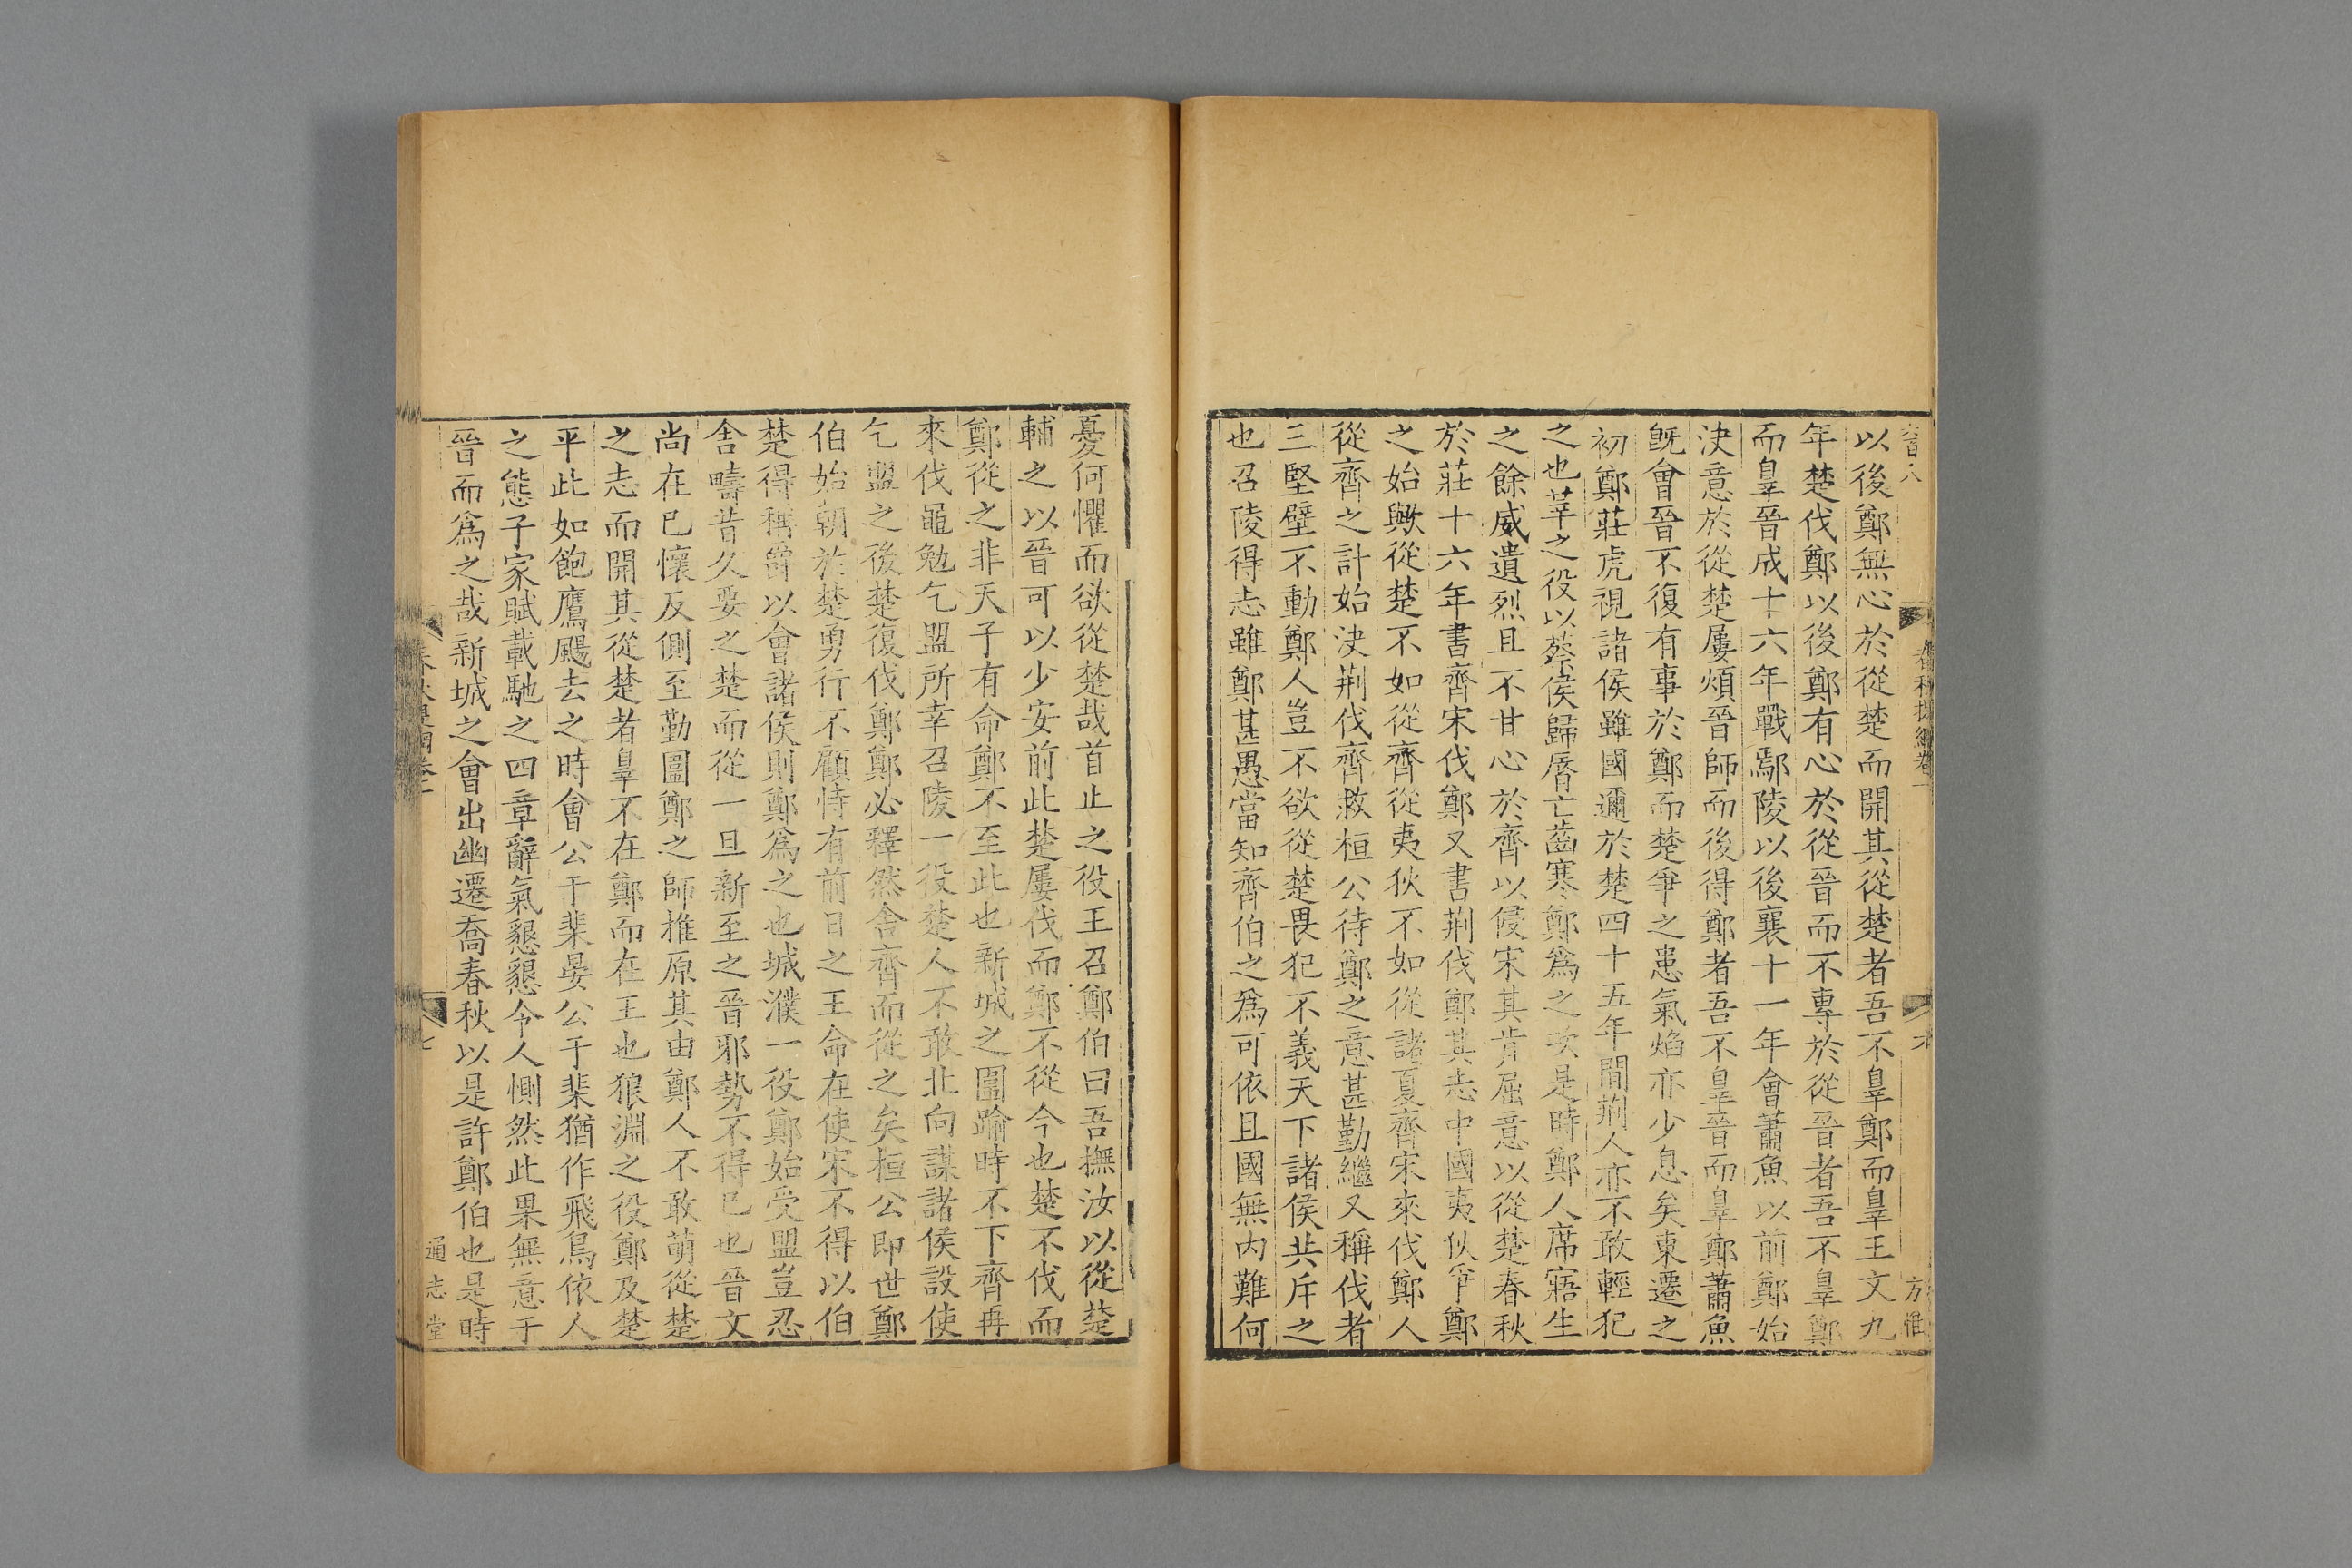 以後鄭無心於從楚而開其從楚者吾不辠鄭而辠王文九
年楚伐鄭以後鄭有心於從晉而不專於從晉者吾不辠鄭
而辠晉成十六年戰鄢陵以後襄十一年會蕭魚以前鄭始
決意於從楚屢煩晉師而後得鄭者吾不辠晉而辠鄭蕭魚
旣會晉不復有事於鄭而楚爭之患氣焰亦少息矣東遷之
初鄭莊虎視諸侯雖國邇於楚四十五年間荊人亦不敢輕犯
之也莘之役以蔡侯歸脣亡齒寒鄭爲之次是時鄭人席寤生
之餘威遺烈且不甘心於齊以侵宋其肯屈意以從楚春秋
於莊十六年書齊宋伐鄭又書荊伐鄭其志中國夷狄爭鄭
之始歟從楚不如從齊從夷狄不如從諸夏齊宋來伐鄭人
從齊之計始決荊伐齊救桓公待鄭之意甚勤繼又稱伐者
三堅壁不動鄭人豈不欲從楚畏犯不義天下諸侯共斥之
也召陵得志雖鄭甚愚當知齊伯之爲可依且國無內難何
方惟
憂何懼而欲從楚哉首止之役王召鄭伯曰吾撫汝以從楚
輔之以晉可以少安前此楚屢伐而鄭不從今也楚不伐而
鄭從之非天子有命鄭不至此也新城之圍踰時不下齊再
來伐黽勉乞盟所幸召陵一役楚人不敢北向謀諸侯設使
乞盟之後楚復伐鄭鄭必釋然舍齊而從之矣桓公即世鄭
伯始朝於楚勇行不顧恃有前日之王命在使宋不得以伯
楚得稱爵以會諸侯則鄭爲之也城濮一役鄭始受盟豈忍
舍疇昔久要之楚而從一旦新至之晉邪勢不得已也晉文
尚在已懷反側至勤圍鄭之師推原其由鄭人不敢萌從楚
之志而開其從楚者辠不在鄭而在王也狼淵之役鄭及楚
平此如飽鷹颺去之時會公于棐晏公于棐猶作飛鳥依人
之態子家賦載馳之四章辭氣懇懇令人惻然此果無意于
晉而爲之哉新城之會出幽遷喬春秋以是許鄭伯也是時
通志堂